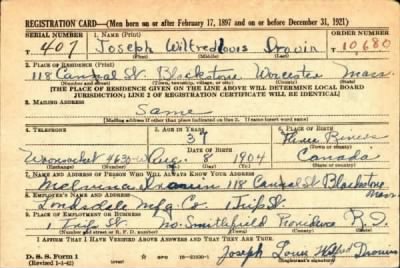 REGISTRATION CARD—(Men born on or after February 17, 1897 and on or before December 31, 1921)
SERIAL NUMBER 1. NAME (Print) ORDER NUMBER
T 407 Joseph Wilfred Louis Drouin T 10,680
(First) (Middle) (Last)
2. PLACE OF RESIDENCE (Print)
118 Cannal St. Blackstone Worcester Mass.
(Number and street) (Town, township, village, or city) (County) (State)
[THE PLACE OF RESIDENCE GIVEN ON THE LINE ABOVE WILL DETERMINE LOCAL BOARD
JURISDICTION; LINE 2 OF REGISTRATION CERTIFICATE WILL BE IDENTICAL]
3. MAILING ADDRESS
Same
[Mailing address if other than place indicated on line 2. If same insert word same]
4. TELEPHONE 5. AGE IN YEARS 6. PLACE OF BIRTH
37 Three Rivers
DATE OF BIRTH (Town or county)
Woonsocket 4630 Aug. 8 1904 Canada
(Exchange) (Number) (Mo.) (Day) (Yr.) (State or country)
7. NAME AND ADDRESS OF PERSON WHO WILL ALWAYS KNOW YOUR ADDRESS
Melvina Drouin 118 Cannal St Blackstone
Mass
8. EMPLOYER'S NAME AND ADDRESS
Lonsdale Mfg. Co. 1 Trifs St.
9. PLACE OF EMPLOYMENT OR BUSINESS
1 Trifs St No. Smithfield Providence R.I.
(Number and street or R. F. D. number) (Town) (County) (State)
I AFFIRM THAT I HAVE VERIFIED ABOVE ANSWERS AND THAT THEY ARE TRUE.
D. S. S. Form 1
(Revised 1-1-42) GPO 16—21630-1 Joseph Louis Wilfred Drouin
(Registrant's signature)